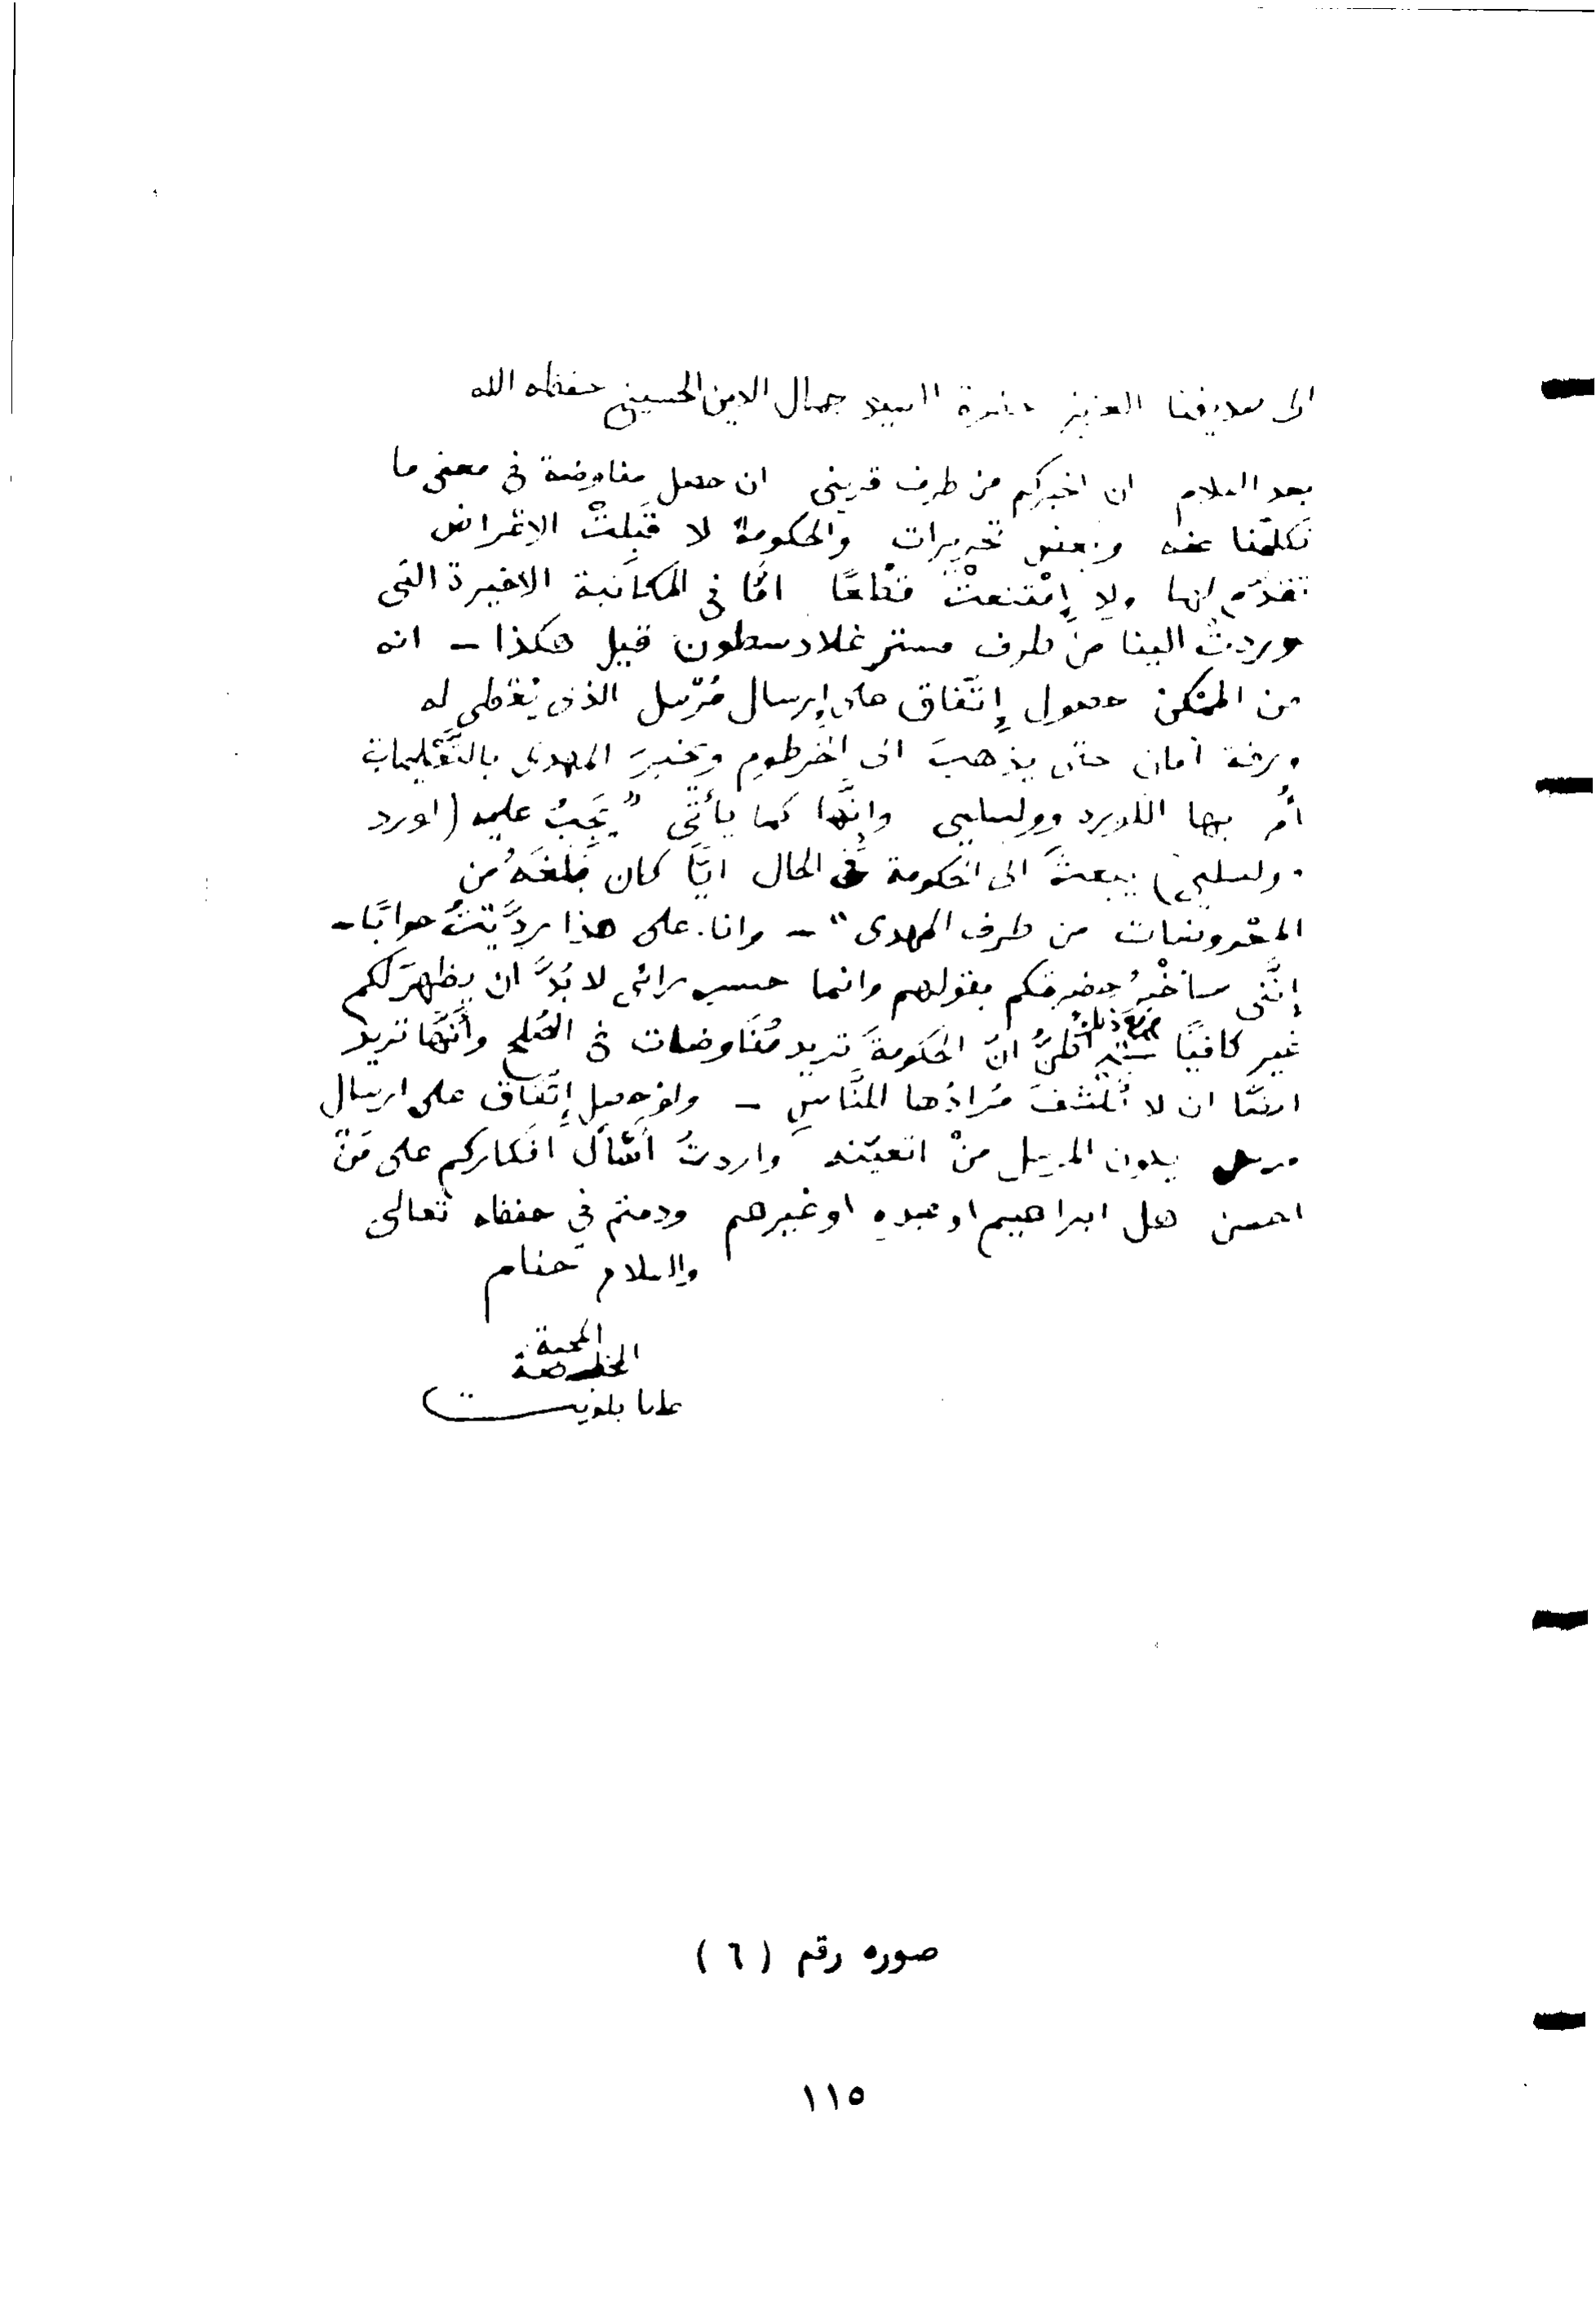 الى صديقنا العزيز حضرة السيد جمال الدين الحسيني حفظه الله
بعد السلام ان اخبركم من طرف قريني ان حصل مفاوضة في معنى ما
تكلّمنا عنه وبعض تحريرات والحكومة لا قَبِلتْ الاغراض
تقدّم لها ولا إمْتنعتْ قطعًا امّا في المكاتبة الاخيرة التي
وردتْ الينا من طرف مستر غلادسطون قيل هكذا – انه
من الممكن حصول إتّفاق على إرسال مُرْسل الذى يُعْطى له
ورقة أمان حتّى يذهبَ الى الخرطوم ويخبرَ المهدى بالتَّعْليمات
أمر بها اللورد وولسلي وانّها كما يأتى "يَجبُ عليه (لورد
وولسلي) يبعثَ الى الحكومة فى الحال ايًّا كان بَلغَهُ من
المعْروضات من طرف المهدى" – وانا على هذا ردَّيْتُ جوابًا –
إنَّنى سأخْبرُ حضرتكم بقولهم وانما حسب رائى لا بُدَّ ان يظهرَ لكم
غير كافيًا ومَعَ ذلك اظنُّ انّ الحكومةَ تريد مُفَاوضات فى الصُلح وأنَّها تريد
ايضًا ان لا تُكْشفَ مُرادُها للنَّاس – ولو حصل إتّفاق على ارسال
مرسل يكون المرسل منْ اتعيّنه واردتُ أسْأل افكاركم على مَنْ
احسن هل ابراهيم او عبده او غيرهم ودمتم في حفظه تعالى
والسلام ختام
المحبة
المخلصة
عانا بلونت
صوره رقم (٦)
١١٥